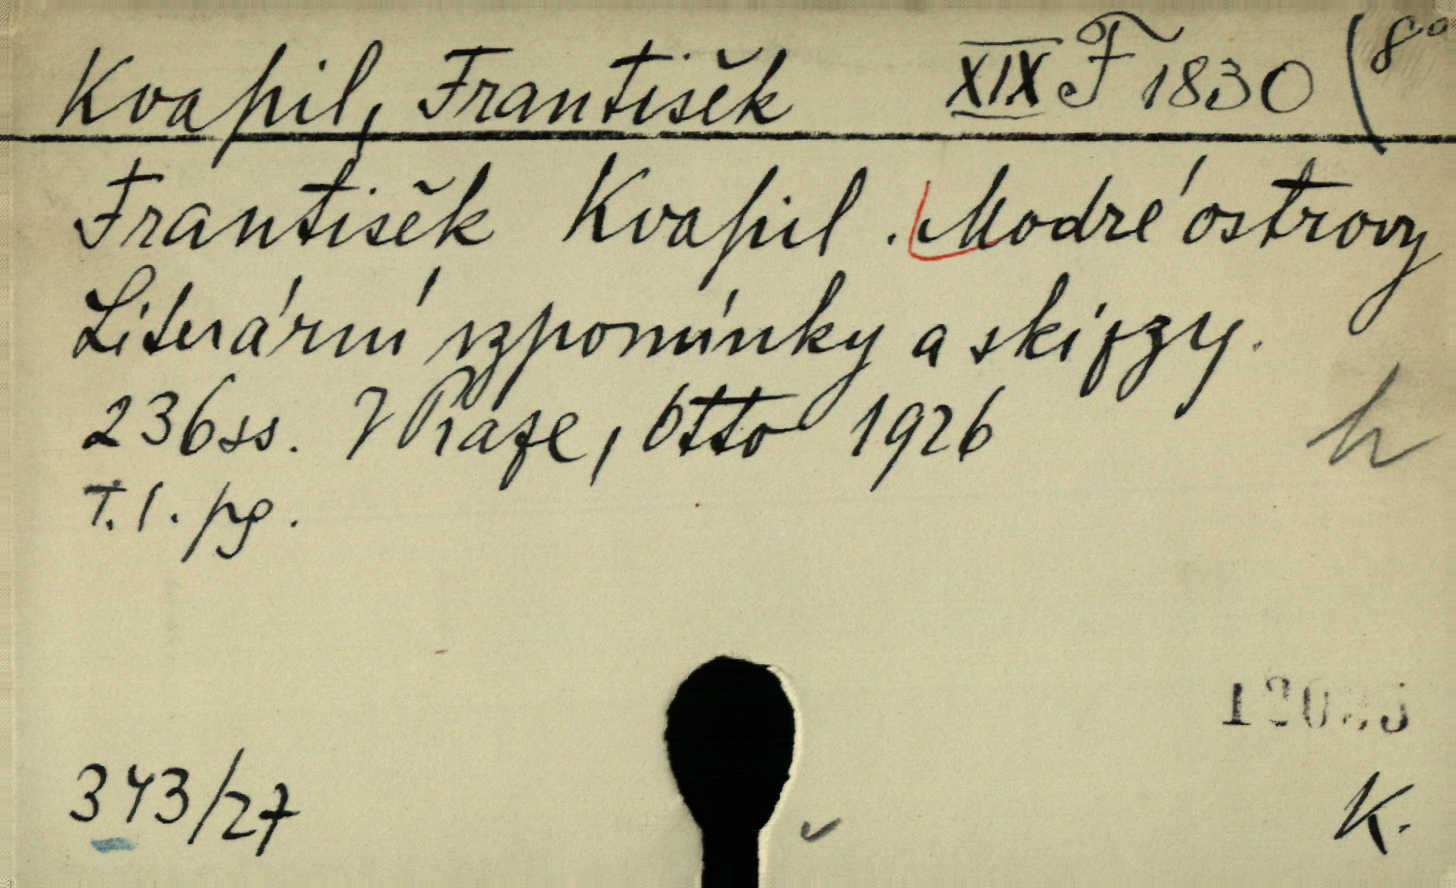 Kvapil, František XIX F 1830 (8°
František Kvapil. Modré ostrovy
Literární vzpomínky a skizzy.
236ss. V Praze, Otto 1926
T. l. pg.
h
343/27
K.